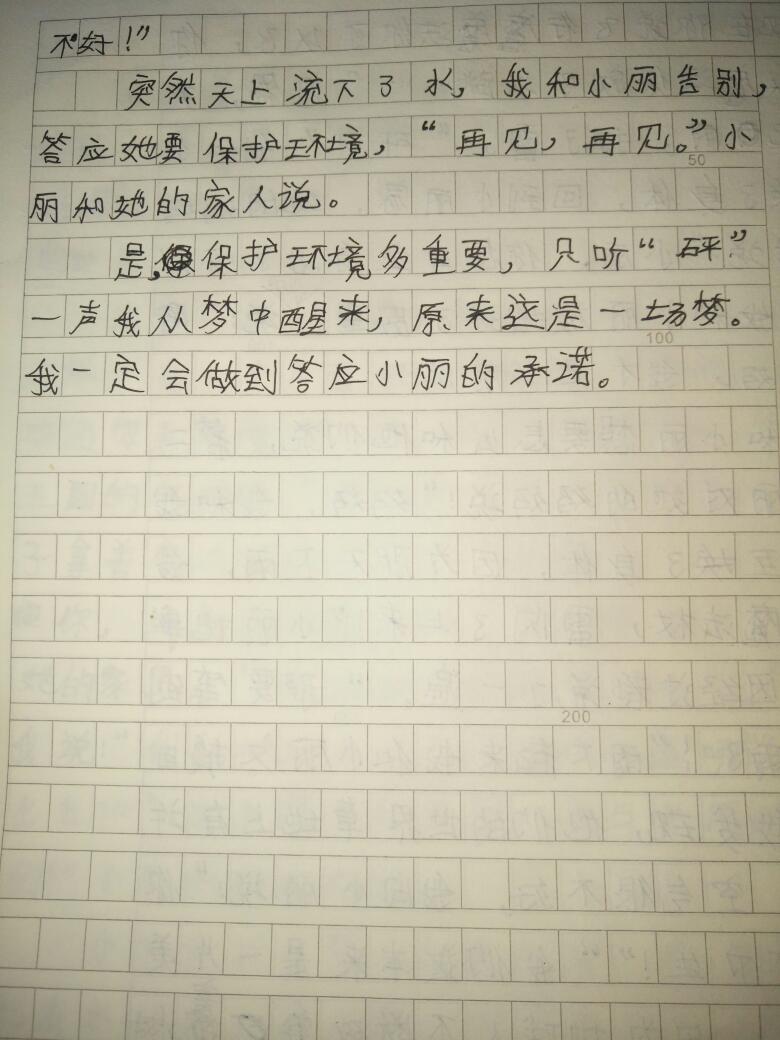 不好！”
突然天上流下了水，我和小丽告别，
答应她要保护环境，“再见，再见。”小
丽和她的家人说。
50
是，保护环境多重要，只听“砰”
一声我从梦中醒来，原来这是一场梦。
100
我一定会做到答应小丽的承诺。
200